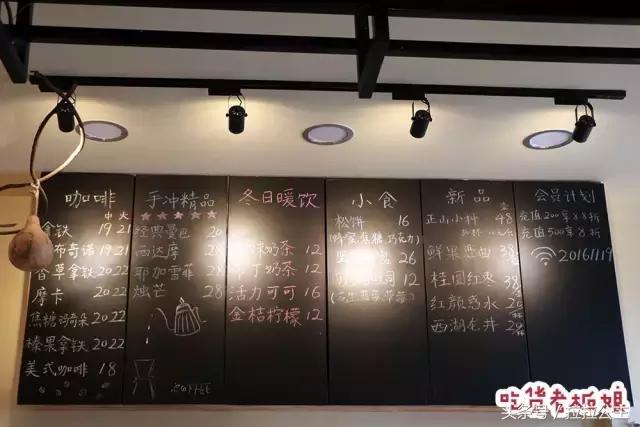 咖啡
中 大
拿铁 19 21
布奇诺 19 21
香草拿铁 20 22
摩卡 20 22
焦糖玛奇朵 20 22
榛果拿铁 20 22
美式咖啡 18
手冲精品
★★★★★
经典曼巴 20
西达摩 28
耶加雪菲 28
烛芒 28
冬日暖饮
奶茶 12
布丁奶茶 12
活力可可 16
金桔柠檬 12
小食
松饼 16
(蜂蜜 焦糖 巧克力)
26
12
新品
正山小种 48
鲜果恋曲 38
桂圆红枣 38
红颜惑水 20
西湖龙井 20
会员计划
充值200享8.8折
充值500享8折
20161119
吃货老板娘
头条号